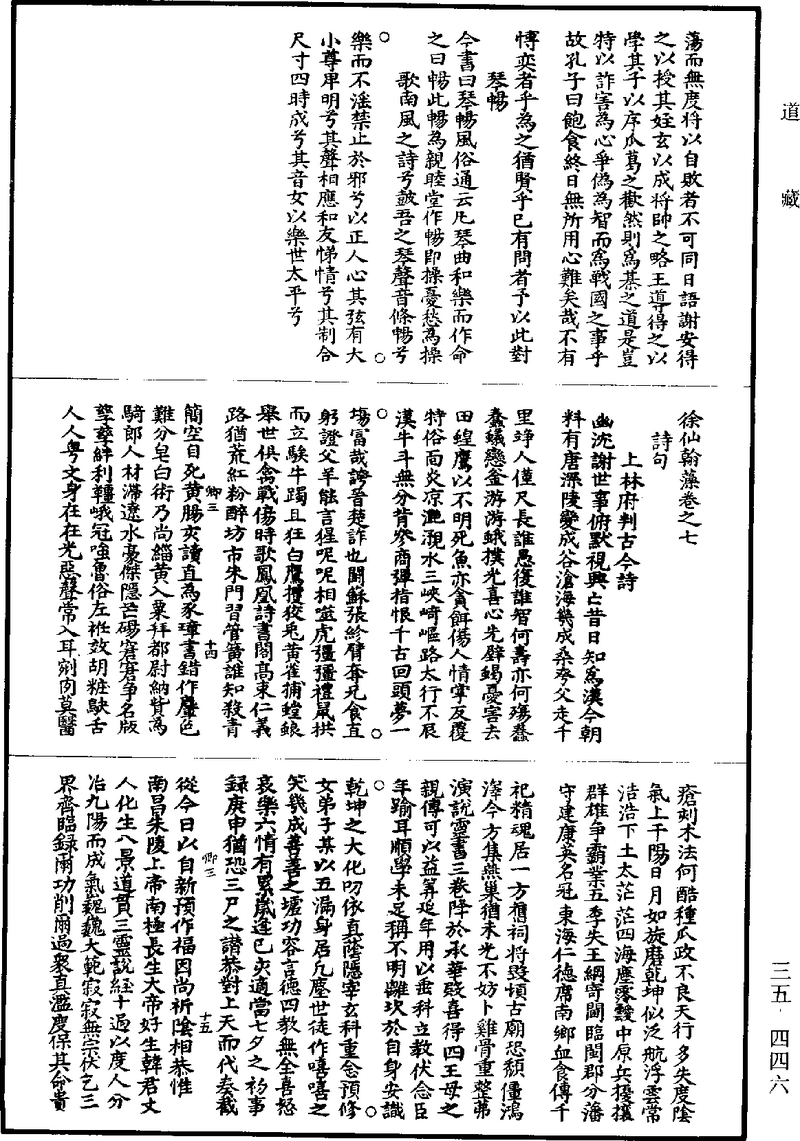 道藏
蕩而無度将以自敗者不可同日語謝安得
之以授其姪玄以成将帥之略王導得之以
學其子以序瓜葛之歡然則為棊之道是豈
特以詐害為心爭偽為智而為戰國之事乎
故孔子曰飽食終日無所用心難矣哉不有
博奕者乎為之猶賢乎已有問者予以此對
琴暢
今書曰琴暢風俗通云凡琴曲和樂而作命
之曰暢此暢為親睦堂作暢即操憂愁為操
歌南風之詩兮鼓吾之琴聲音條暢兮
樂而不淫禁止於邪兮以正人心其弦有大
小尊卑明兮其聲相應和友悌情兮其制合
尺寸四時成兮其音女以樂世太平兮
徐仙翰藻卷之七
詩句
上林府判古今詩
幽沈謝世事俯默視興亡昔日知為漢今朝
料有唐深陵變成谷滄海幾成桑夸父走千
里竫人僅尺長誰愚復誰智何壽亦何殤蠢
蠢蟻戀金游游蛾撲光喜心先辟蝎憂害去
田蝗鷹以不明死魚亦貪餌傷人情掌反覆
特俗面炎凉灩澦水三峽崎嶇路太行不辰
漢牛斗無分肯參商彈指恨千古回頭夢一
場富哉誇晉楚詐也鬪蘇張紾臂奪兄食直
躬證父羊能言猩呢呢相噬虎彊彊禮鼠拱
而立騃牛躅且狂白鷹攫狡兎黄雀捕螳螂
舉世俱禽戰傷時歌鳳凰詩書閣高束仁義
路猶荒紅粉醉坊市朱門習管簧誰知殺青
簡空自死黄腸夾讀直為豕璋書錯作麞色
難分皂白術乃尚緇黄入粟拜都尉納貲為
騎郎人材滞遼水豪傑隱芒碭窘窘爭名版
孳孳絆利韁峨冠嗤魯俗左袵效胡粧鴃舌
人人粤文身在在羌惡聲常入耳剜肉莫醫
瘡刺木法何酷種瓜政不良天行多失度陰
氣上干陽日月如旋磨乾坤似泛航浮雲常
洁浩下土太茫茫四海塵霧靉中原兵擾攘
群雄爭霸業五季失王綱寄閫臨閩郡分藩
守建康英名冠東海仁德席南鄉血食傳千
祀精魂居一方舊祠将毁頓古廟恐頹僵鴻
澤今方集燕巢猶未光不妨卜雞骨重整茀
演說靈書三卷降於承華殿喜得四王母之
親傳可以益筭延年用以垂科立教伏念臣
年踰耳順學未足稱不明離坎於自身安識
乾坤之大化叨依真蔭隱宰玄科重念預修
女弟子某以五漏身居凡塵世徒作嘻嘻之
笑幾成善善之壚功容言德四教無全喜怒
哀樂六情有累歲逢已夾適當七夕之初事
録庚申猶恐三尸之譖恭對上天而代奏懺
從今日以自新預作福因尚祈陰相恭惟
南昌朱陵上帝南極長生大帝好生韓君丈
人化生八景道貫三靈說經十過以度人分
冶九陽而成氣巍巍大範寂寂無宗伏乞三
界齊臨録爾功削爾過衆真濫度保其命貴
卿三
十四
卿三
十五
三五·四四六